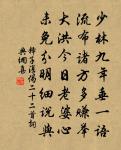 少林九年垂一语
流布诸方多赚举
大洪今日老婆心
未免分明细说与
释子淳偈二十二首 祠
典偶喜